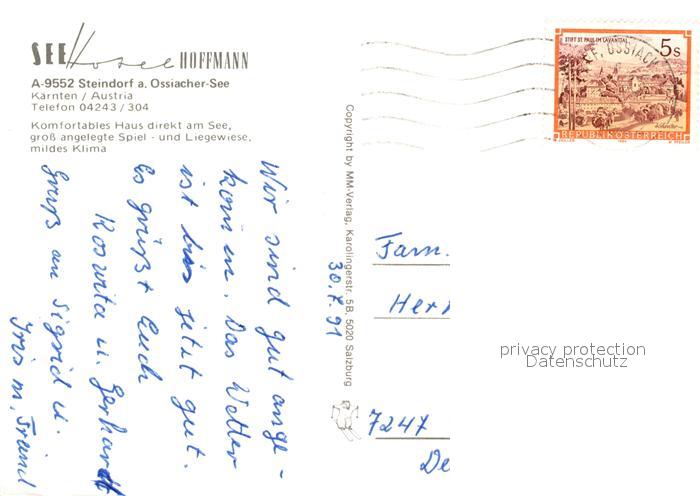 SEEHotel HOFFMANN
A-9552 Steindorf a. Ossiacher-See
Kärnten / Austria
Telefon 04243 / 304
Komfortables Haus direkt am See,
groß angelegte Spiel - und Liegewiese,
mildes Klima
Wir sind gut ange-
kommen. Das Wetter
ist bis jetzt gut.
Es grüßt Euch
Roswita u. Gerhardt
Gruß an Sigrid u.
Iris m. Freund
30.7.91
Copyright by MM-Verlag, Karolingerstr. 5B, 5020 Salzburg
STIFT ST. PAUL IM LAVANTTAL
5 S
OSSIACH
REPUBLIK ÖSTERREICH
Fam.
Her
7247
De
privacy protection
Datenschutz